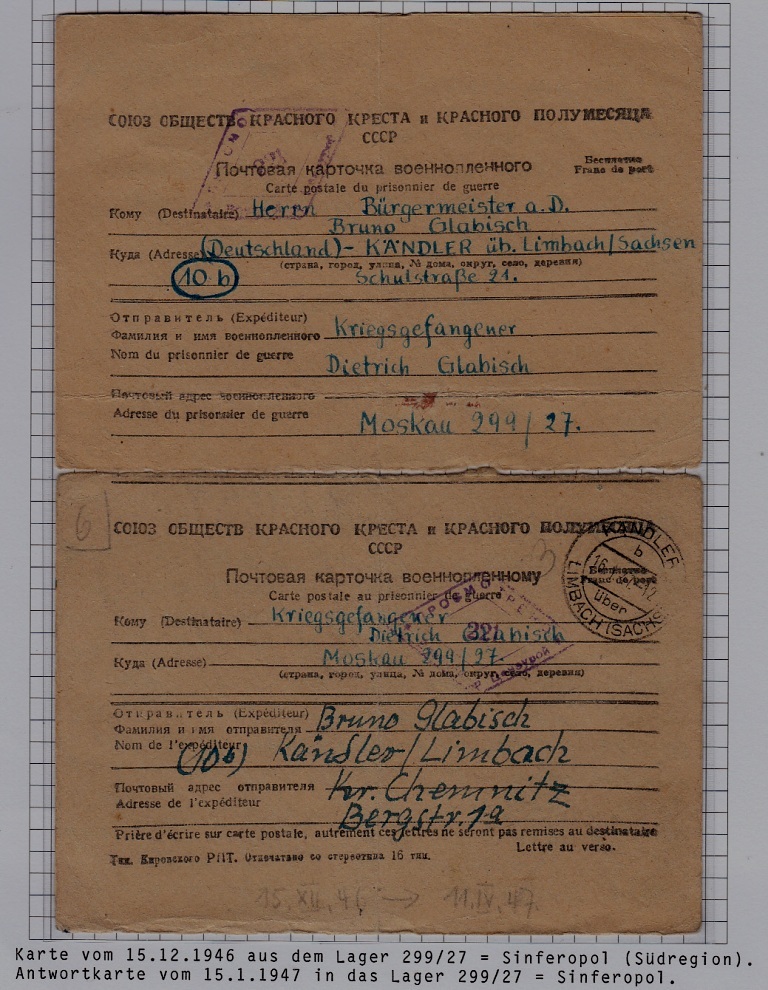 СОЮЗ ОБЩЕСТВ КРАСНОГО КРЕСТА и КРАСНОГО ПОЛУМЕСЯЦА
СССР
Почтовая карточка военнопленного
Бесплатно
Franc de port
Carte postale du prisonnier de guerre
Кому (Destinataire) Herrn Bürgermeister a.D.
Bruno Glabisch
Куда (Adresse) (Deutschland) - KÄNDLER üb. Limbach/Sachsen
(страна, город, улица, № дома, округ, село, деревня)
10 b Schulstraße 21.
Отправитель (Expéditeur)
Фамилия и имя военнопленного Kriegsgefangener
Nom du prisonnier de guerre
Dietrich Glabisch
Почтовый адрес военнопленного
Adresse du prisonnier de guerre
Moskau 299/27.
6
СОЮЗ ОБЩЕСТВ КРАСНОГО КРЕСТА и КРАСНОГО ПОЛУМЕСЯЦА
СССР
KÄNDLER
b
über
LIMBACH (SACHS
Почтовая карточка военнопленному
Бесплатно
Franc de port
Carte postale au prisonnier de guerre
ПРОСМОТРЕНО
321
Цензурой
Кому (Destinataire) Kriegsgefangener
Dietrich Glabisch
Куда (Adresse) Moskau 299/27.
(страна, город, улица, № дома, округ, село, деревня)
Отправитель (Expéditeur) Bruno Glabisch
Фамилия и имя отправителя
Nom de l'expéditeur (10b) Kändler/Limbach
Почтовый адрес отправителя Kr. Chemnitz
Adresse de l'expéditeur Bergstr. 1a
Prière d'écrire sur carte postale, autrement ces lettres ne seront pas remises au destinataire
Lettre au verso.
Тип. Кировского РПТ. Отпечатано со стереотипа 16 тип.
15.XII.46 → 11.IV.47.
Karte vom 15.12.1946 aus dem Lager 299/27 = Sinferopol (Südregion).
Antwortkarte vom 15.1.1947 in das Lager 299/27 = Sinferopol.